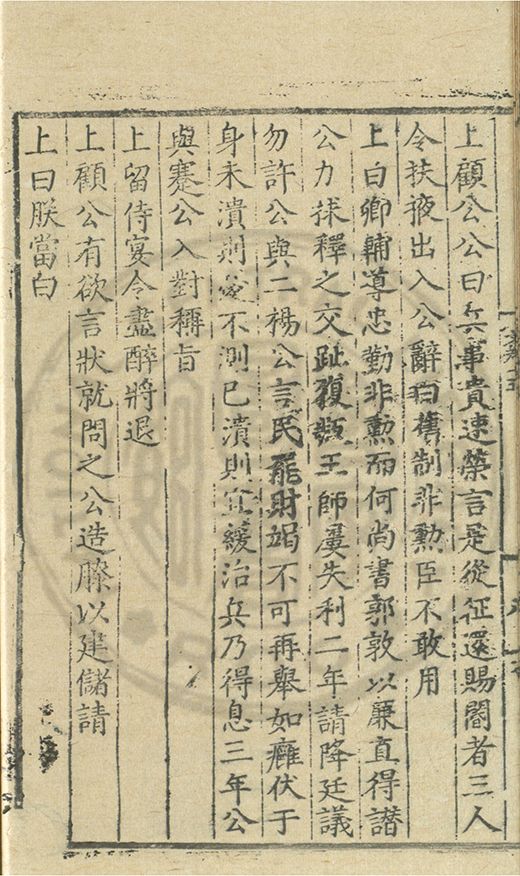 上顧公公曰兵事貴速榮言是從征還賜閽者三人
令扶掖出入公辭曰舊制非勳臣不敢用
上曰卿輔導忠勤非勳而何尚書郭敦以廉直得譖
公力捄釋之交趾復叛王師屢失利二年請降廷議
勿許公與二楊公言民罷財竭不可再舉如癰伏于
身未潰則憂不測已潰則宜緩治兵乃得息三年公
與蹇公入對稱旨
上留侍宴令盡醉將退
上顧公有欲言狀就問之公造膝以建儲請
上曰朕當白